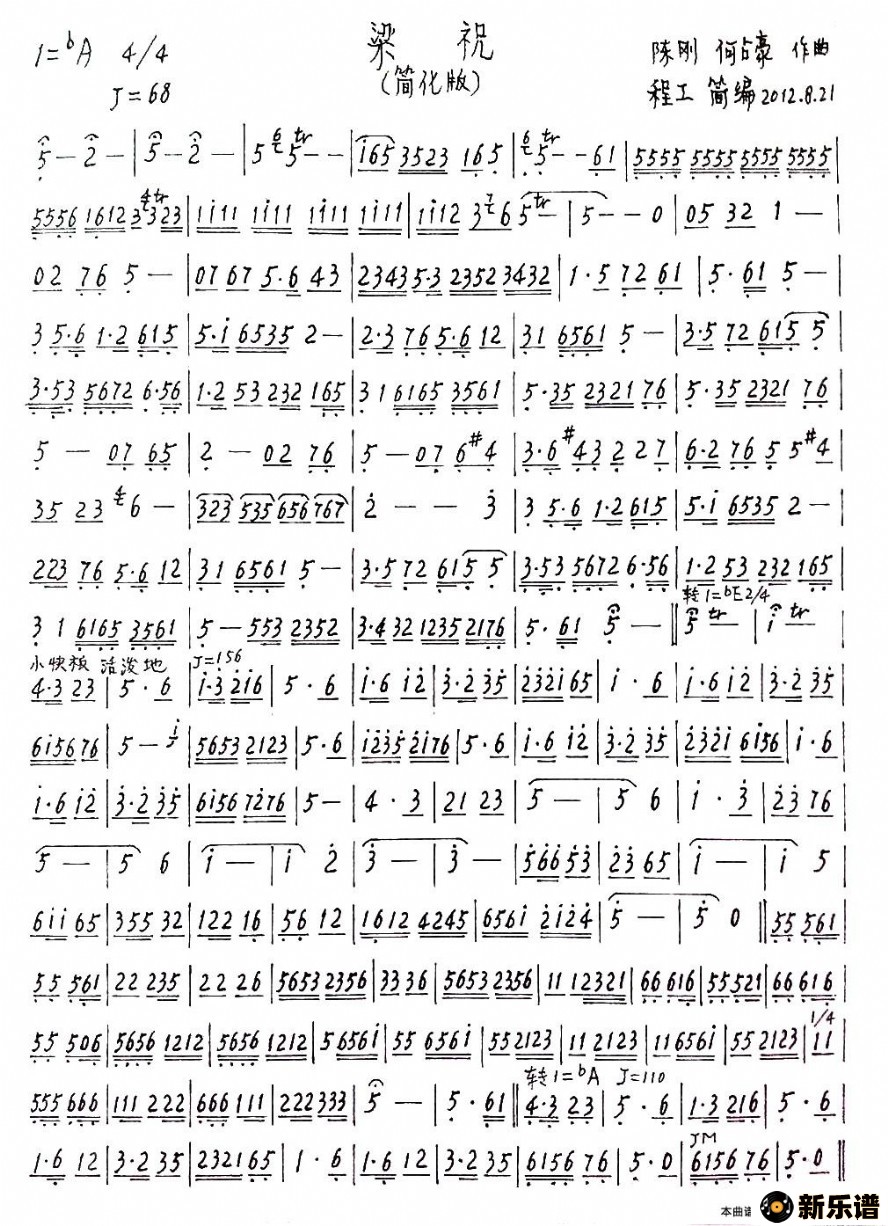 梁 祝
1=ᵇA 4/4
(简化版)
陈刚 何占豪 作曲
J=68
程工 简编 2012.8.21
5 — 2 — | 5 — 2 — | 5 6 5 tr — — | i65 3523 165 | 6 5 tr — — 61 | 5555 5555 5555 5555 |
5556 1612 3 4 3 tr 23 | 1i11 1i11 1i11 1i11 | 1i12 3 7 6 5 tr — | 5 — — 0 | 05 32 1 — |
02 76 5 — | 07 67 5·6 43 | 2343 5·3 2352 3432 | 1·5 72 61 | 5·61 5 — |
3 5·6 1·2 615 | 5·i 6535 2 — | 2·3 76 5·6 12 | 31 6561 5 — | 3·5 72 615 5 |
3·53 5672 6·56 | 1·2 53 232 165 | 3 1 6165 3561 | 5·35 2321 76 | 5·35 2321 76 |
5 — 07 65 | 2 — 02 76 | 5 — 07 6#4 | 3·6 #43 2 2 7 | 6·2 76 5 5#4 |
35 23 4 6 — | 323 535 656 767 | 2 — — 3 | 3 5·6 1·2 615 | 5·i 6535 2 — |
223 76 5·6 12 | 31 6561 5 — | 3·5 72 615 5 | 3·53 5672 6·56 | 1·2 53 232 165 |
转1=ᵇE 2/4
3 1 6165 3561 | 5 — 553 2352 | 3·4 32 1235 2176 | 5·61 5 — || 5 tr — | i tr — |
小快板 活泼地 J=156
4·3 23 | 5·6 | i·3 2i6 | 5·6 | i·6 i2 | 3·2 35 | 232i 65 | i·6 | i·6 i2 | 3·2 35 |
6i56 76 | 5 — i | 5653 2123 | 5·6 | i235 2i76 | 5·6 | i·6 i2 | 3·2 35 | 232i 6i56 | i·6 |
i·6 i2 | 3·2 35 | 6i56 7276 | 5 — | 4·3 | 21 23 | 5 — | 5 6 | i·3 | 23 76 |
5 — | 5 6 | i — | i 2 | 3 — | 3 — | 5665 53 | 23 65 | i — | i 5 |
6ii 65 | 355 32 | 122 16 | 56 12 | 1612 4245 | 656i 2i24 | 5 — | 5 0 || 55 561 |
55 561 | 22 235 | 22 26 | 5653 2356 | 33 36 | 5653 2356 | 11 12321 | 66 616 | 55 521 | 66 616 |
1/4
55 506 | 5656 1212 | 5656 1212 | 5 656i | 55 656i | 55 2123 | 11 2123 | 11 656i | 55 2123 | 11 |
转1=ᵇA J=110
555 666 | 111 222 | 666 111 | 222 333 | 5 — | 5·61 || 4·3 23 | 5·6 | 1·3 216 | 5·6 |
JM
1·6 12 | 3·2 35 | 2321 65 | 1·6 | 1·6 12 | 3·2 35 | 6156 76 | 5·0 | 6156 76 | 5·0 ||
本曲谱 新乐谱